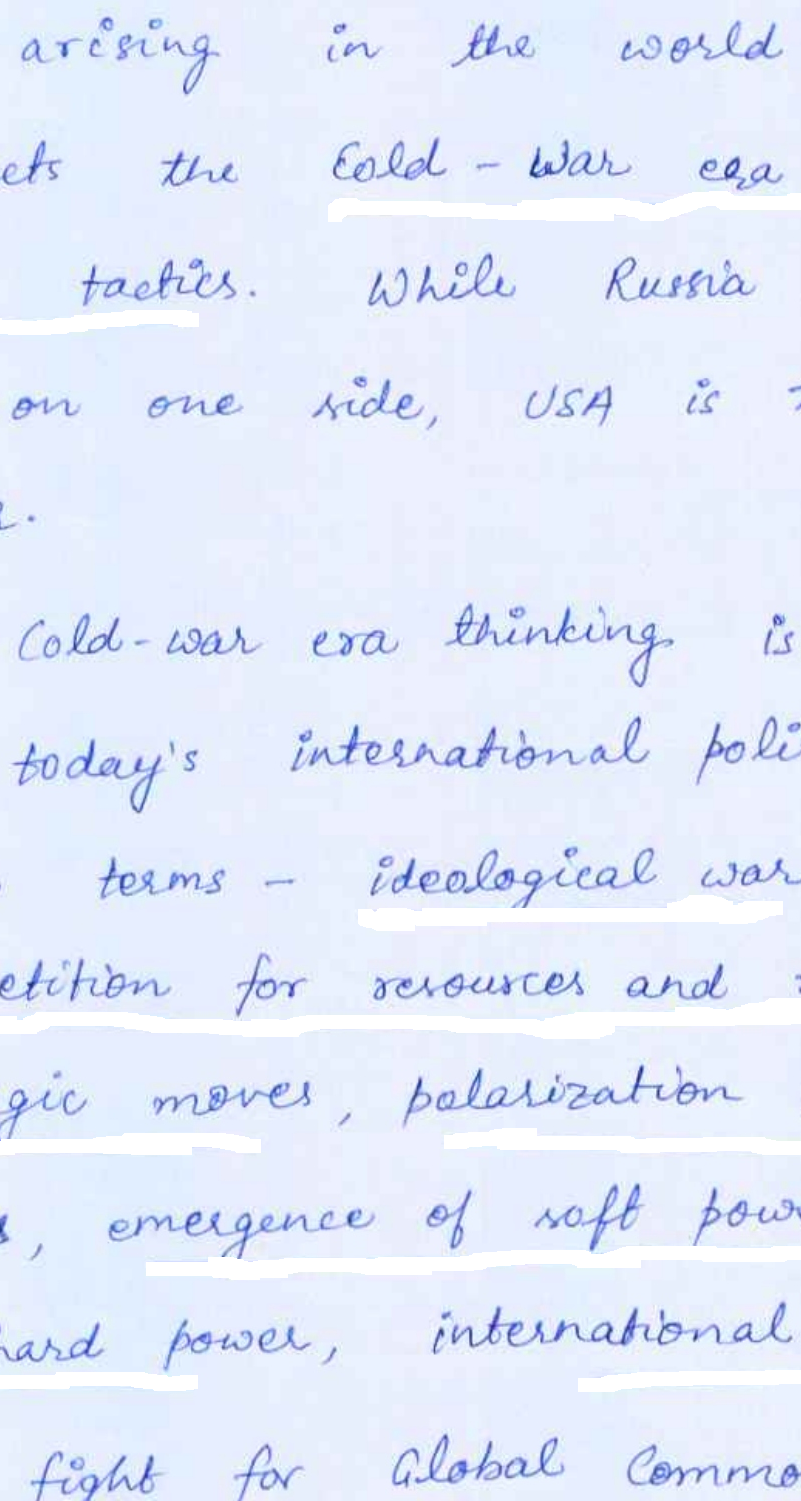 arising in the world
ects the Cold - War era
tactics. While Russia
on one side, USA is
Cold-war era thinking is
today's international poli
terms - ideological war
etition for resources and
gic moves, polarization
s, emergence of soft pow
hard power, international
fight for Global Commo